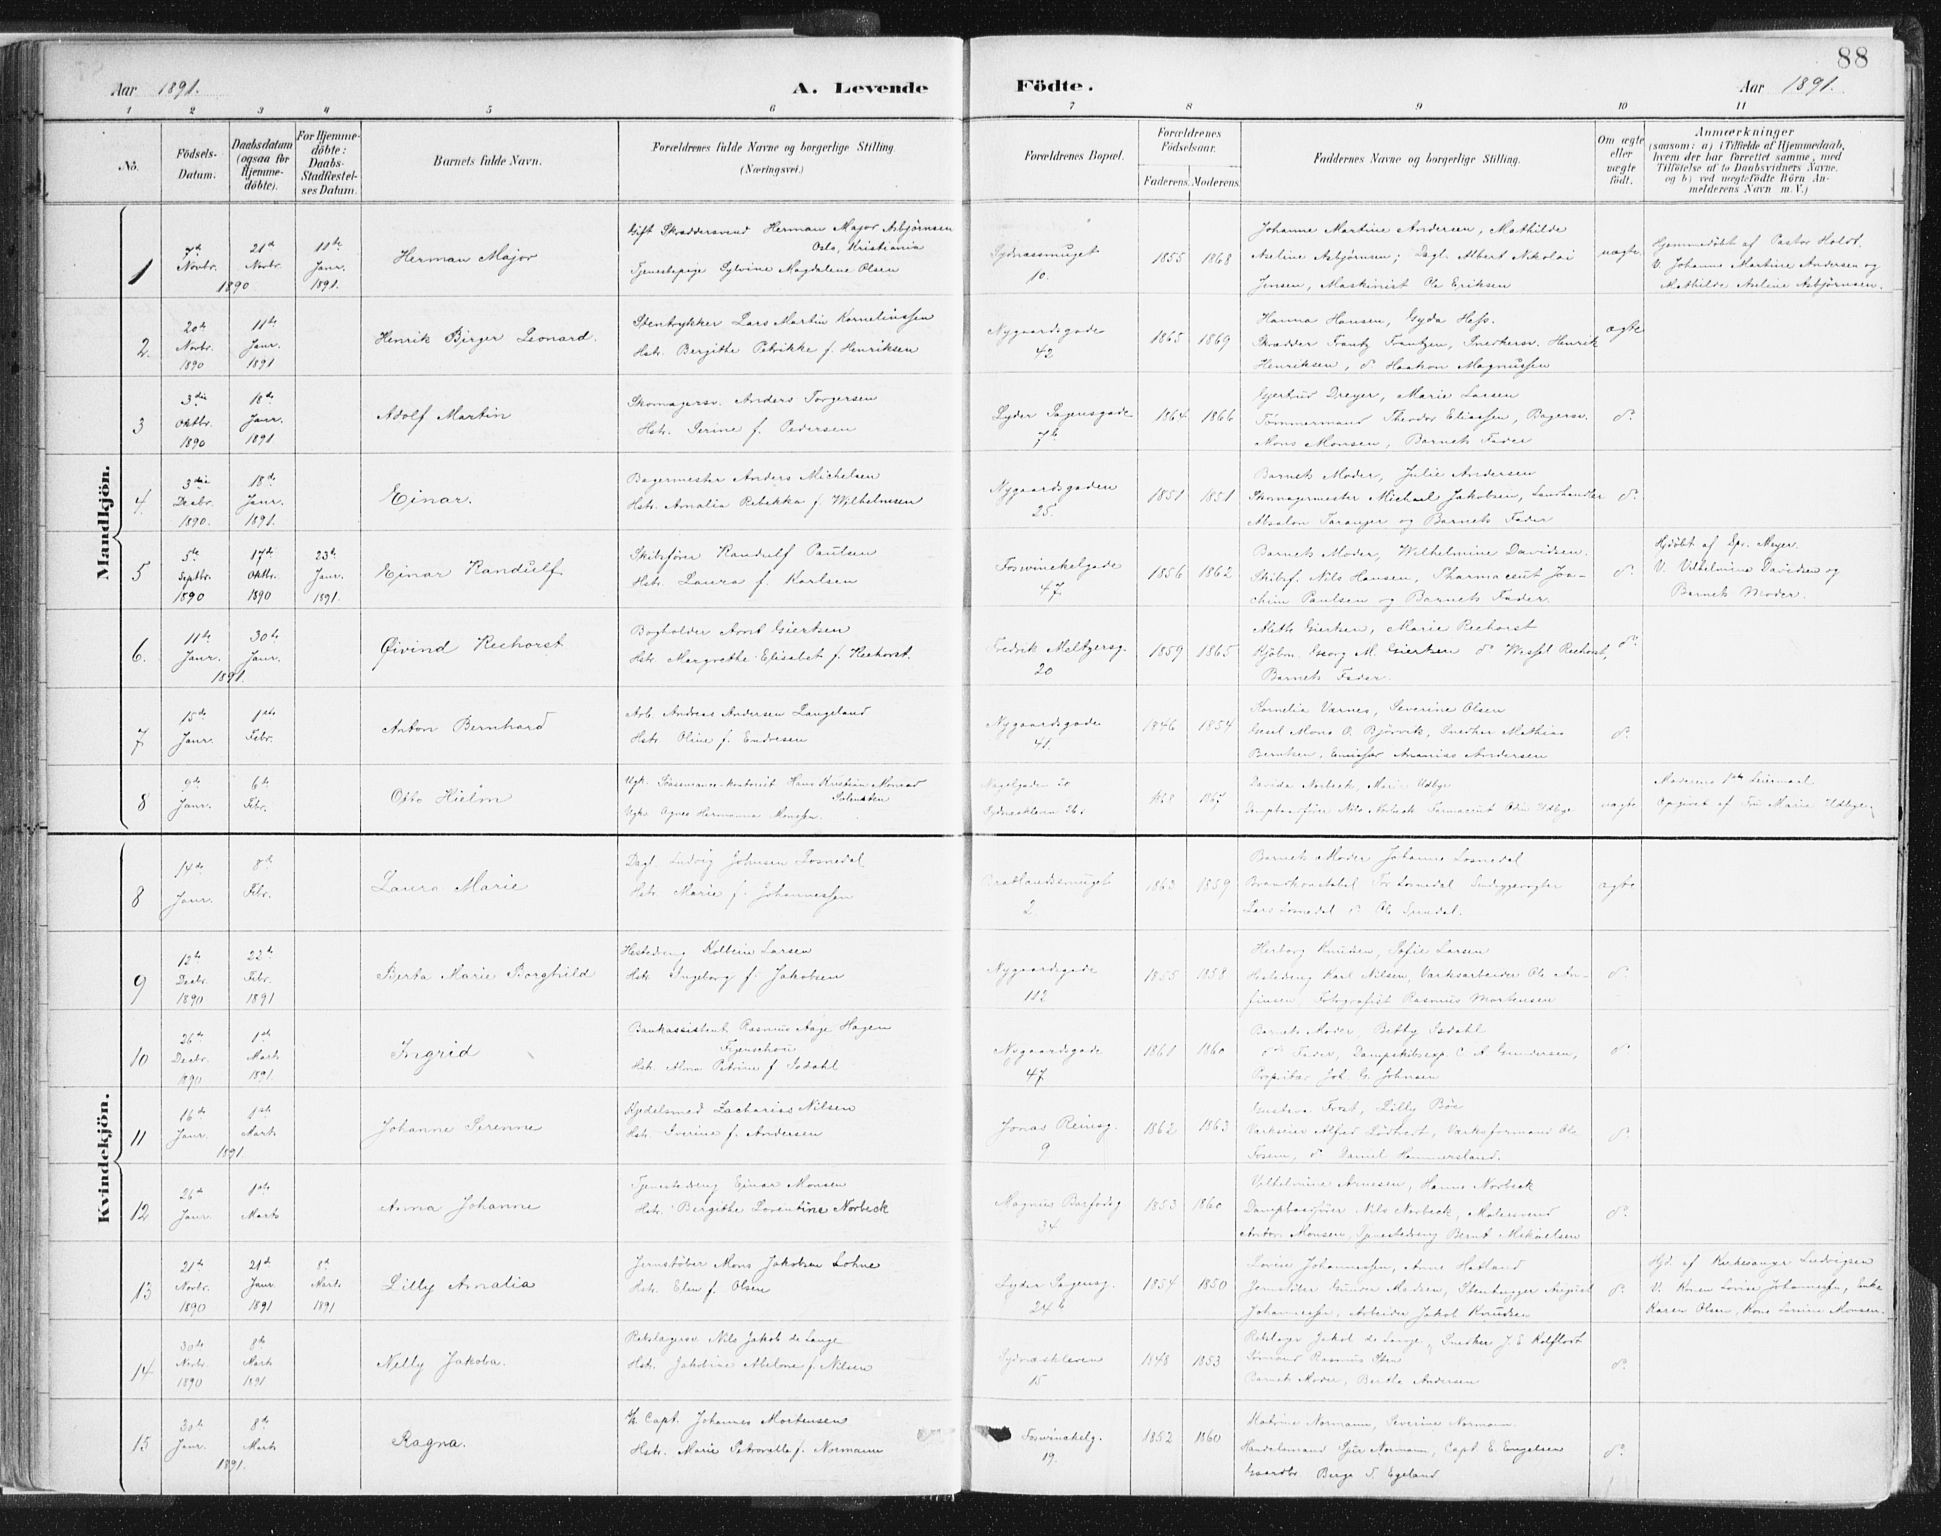 88
Aar 1891. A. Levende Födte. Aar 1891.
1 2 3 4 5 6 7 8 9 10 11
No. Födsels-Datum. Daabsdatum (ogsaa for Hjemmedöbte). For Hjemmedöbte: Daabs-Stadfæstelses Datum. Barnets fulde Navn. Forældrenes fulde Navne og borgerlige Stilling (Næringsvei.) Forældrenes Bopæl. Forældrenes Födselsaar. Faderens. Moderens. Faddernes Navne og borgerlige Stilling. Om ægte eller uægte födt. Anmærkninger (saasom: a) i Tilfælde af Hjemmedaab, hvem der har forrettet samme, med Tilföielse af to Daabsvidners Navne, og b) ved uægtefödte Börn Anmelderens Navn m. V.)
Mandkjön.
1 7de Novbr. 21de Novbr. 1890 11te Janr. 1891. Herman Major
Gift Skræddersvend Herman Major Asbjörnsen
Oslo, Kristiania
Tjenestepige Sylvine Magdalene Olsen
Sydnæssmuget 10. 1855 1868
Johanne Martine Andersen, Mathilde
Aseline Asbjörnsen; Dagl. Albert Nikolai
Jensen, Maskinist Ole Eriksen
uægte
Hjemmedöbt af Pastor Holdt.
V. Johanne Martine Andersen og
Mathilde Aseline Asbjörnsen.
2. 20de Novbr. 1890 11te Janr. 1891 Henrik Birger Leonard.
Stentrykker Lars Martin Kornelinssen
Hstr. Bergitte Petrikke f. Henriksen
Nygaardsgade 42 1865 1869
Hanna Hansen, Gyda Hess.
Skrædder Frantz Frantzen, Snedkersv. Henrik
Henriksen, do Haakon Magnussen
ægte
3 3die Oktbr. 1890 18de Janr. 1891 Adolf Martin
Skomagersv. Anders Torgersen
Hstr. Serine f. Pedersen
Lyder Sagensgade 7b 1864 1866
Gjertrud Dreyer, Marie Larsen
Tömmermand Theodor Eliassen, Bagersv.
Mons Monsen, Barnets Fader
do
4. 3die Decbr. 1890. 18de Janr. 1891. Einar.
Bagermester Anders Michelsen
Hstr. Amalia Rebekka f. Wilhelmsen
Nygaardsgaden 25. 1851 1851
Barnets Moder, Julie Andersen
Skomagermester Michael Jakobsen, Landhandler
Absalon Taranger og Barnets Fader
do
5 5te Septbr. 1890 17de Oktbr. 1890 23de Janr. 1891. Einar Randulf
Skibsförer Randulf Paulsen
Hstr. Laura f. Karlsen
Foswinckelgade 47. 1856 1862
Barnets Moder, Wilhelmine Davidsen.
Skibsf. Nils Hansen, Pharmaceut Joa-
chim Paulsen og Barnets Fader.
do
Hjdöbt af Spr. Meyer.
V. Vilhelmine Davidsen og
Barnets Moder.
6. 11te Janr. 30te Janr. 1891. Øivind Reehorst
Bogholder Arnt Giertsen
Hstr. Margrethe Elisabet f. Reehorst.
Fredrik Meltzersg. 20 1859 1865
Meth. Giertsen, Marie Reehorst
Kjöbm. Georg M. Giertsen do Wessel Reehorst,
Barnets Fader.
do
7 15de Janr. 1ste Febr. Anton Bernhard
Arb. Andreas Andersen Langeland
Hstr. Oline f. Endresen
Nygaardsgade 41. 1846 1854
Kornelia Værnes, Severine Olsen
Gesel Mons O. Björvik, Snedker Mathias
Berntsen, Emissær Ananias Andersen
do
8 9de Janr. 6te Febr. Otto Hielm
Ugk. Hans Kristian Monrad
Ugk. Agnes Hermanna Monssen.
1867
Davida Norbeck, Marie Udbye
Nils Norbeck Farmaceut Odin Udbye
uægte
Moderens 1ste Leiermaal
Opgivet af Frk Marie Udbye
Kvindekjön.
8 14de Janr. 8de Febr. Laura Marie
Dagl. Ludvig Johnsen Losnedal
Hstr. Marie f. Johannessen
Bratlandssmuget 2. 1863 1859
Barnets Moder Johanne Losnedal
Brandkonstabel Tor Losnedal
Lars Losnedal do Ole
ægte
9 12te Decbr. 1890 22de Febr. 1891 Berta Marie Borghild
Hestedreng Kolbein Larsen
Hstr. Ingeborg f. Jakobsen
Nygaardsgade 112 1855 1858
Herborg Knudsen, Sofie Larsen
Hestedreng Karl Nilsen, Værksarbeider Ole An-
finsen, Fotografist Rasmus Mortensen
do
10 26de Decbr. 1890 1ste Marts 1891. Ingrid
Bankassistent Rasmus Aage Hagen
Fejenschou
Hstr. Alma Petrine f. Isdahl
Nygaardsgade 47. 1861 1860
Barnets Moder Betty Isdahl
do Fader, Dampskibsexp. C. A. Gundersen,
Proprietær Joh. G. Johnsen
do
11 16de Janr. 1ste Marts 1891 Johanne Serenne
Kjedelsmed Zacharias Nilsen
Hstr. Iverine f. Andersen
Jonas Reinsg. 9 1862 1863
Gustava Frost, Lilly Böe
Værkseier Alfred Lödtvedt, Værksformand Ole
Fosem, do Daniel Hammersland.
do
12 26de Janr. 1ste Marts Anna Johanne
Tjenestedreng Einar Monsen
Hstr. Bergithe Lorentine Norbeck
Magnus Barfodsg 34 1853 1860
Vilhelmine Arnesen, Hanna Norbeck
Dampbaadförer Nils Norbeck, Malersvend
Anton Monsen, Tjenestedreng Bernt Mikaelsen
do
13 21de Novbr. 1890 21de Janr. 1891 8de Marts 1891 Lilly Amalia
Jernstöber Mons Jakobsen Lohne
Hstr. Elen f. Olsen
Lyder Sagensg. 24b 1854 1850
Lovise Johannessen, Anne Hatland
Jernstöber Gunder Madsen, Stenhugger August
Johannessen, Arbeider Jakob Knudsen
do
Hjd. af Kirkesanger Ludvigsen
V. Konen Lovise Johannessen, Enke
Karen Olsen, Kone Lovise Monsen.
14 30te Novbr. 1890 8de Marts 1891 Nelly Jakoba.
Rebslagersv. Nils Jakob de Lange
Hstr. Jakobine Abelone f. Nilsen
Sydnæskleven 15 1848 1853
Rebslager Jakob de Lange, Snedker J. E. Kolflodt
Rasmus
Barnets Moder, Berthe Andersen
do
15 30te Janr. 8de Marts 1891. Ragna.
Capt. Johannes Mortensen
Hstr. Marie Petronelle f. Normann
Foswinckelg. 19. 1852 1860
Katrine Normann, Severine Normann.
Handelsmand Sjur Normann, Capt. E. Engelsen
Gaardbr Berge T. Egeland
do